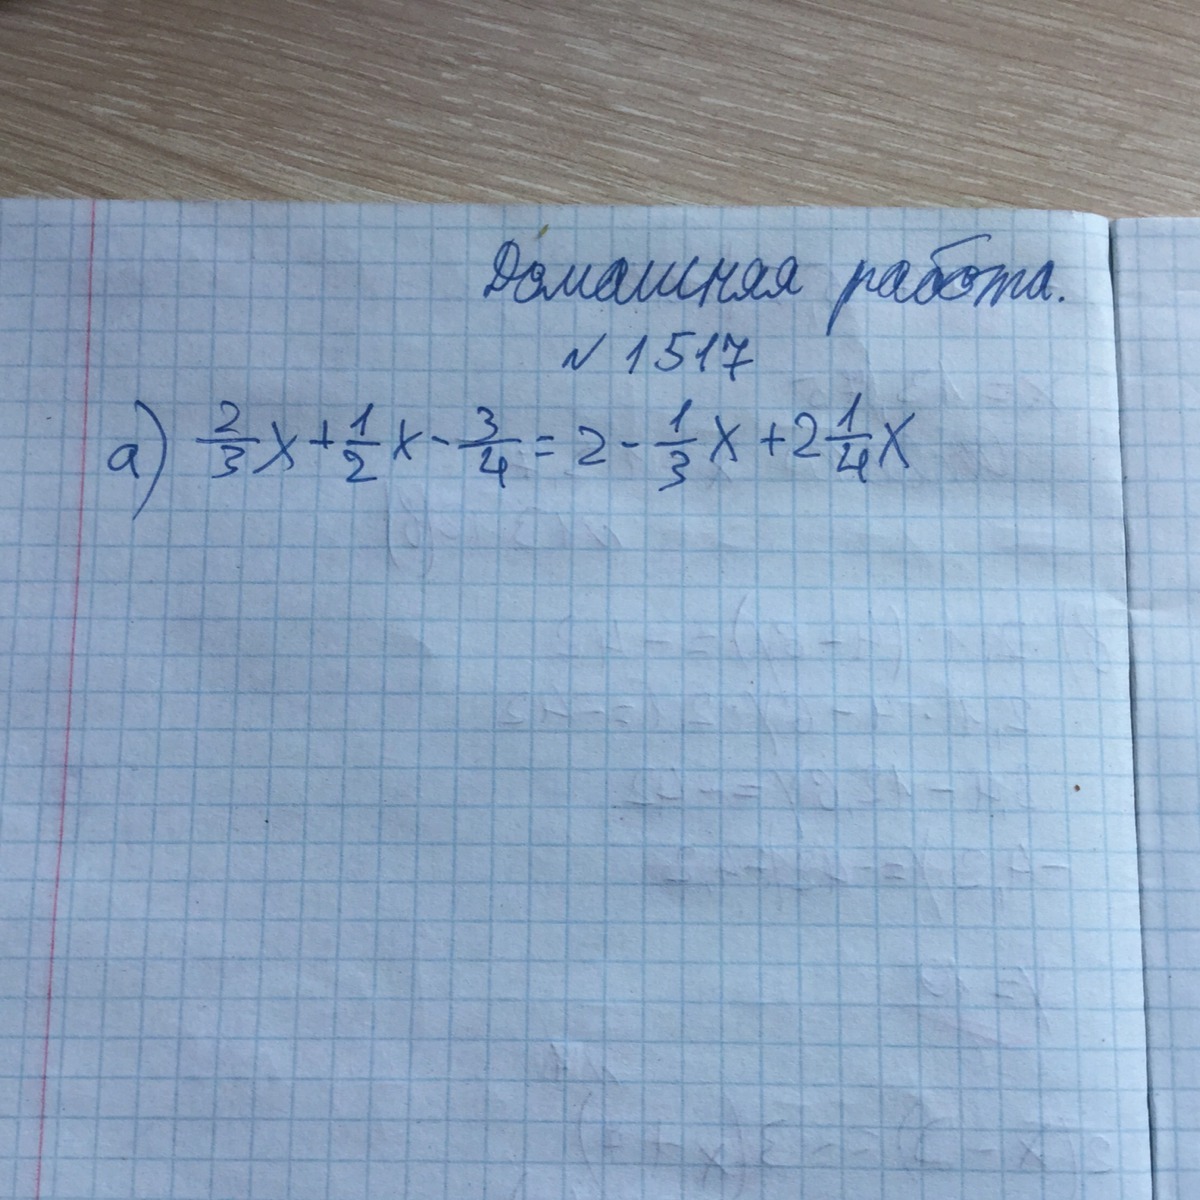 Домашняя работа.
N 1517
а) 2/3 x + 1/2 x - 3/4 = 2 - 1/3 x + 2 1/4 x